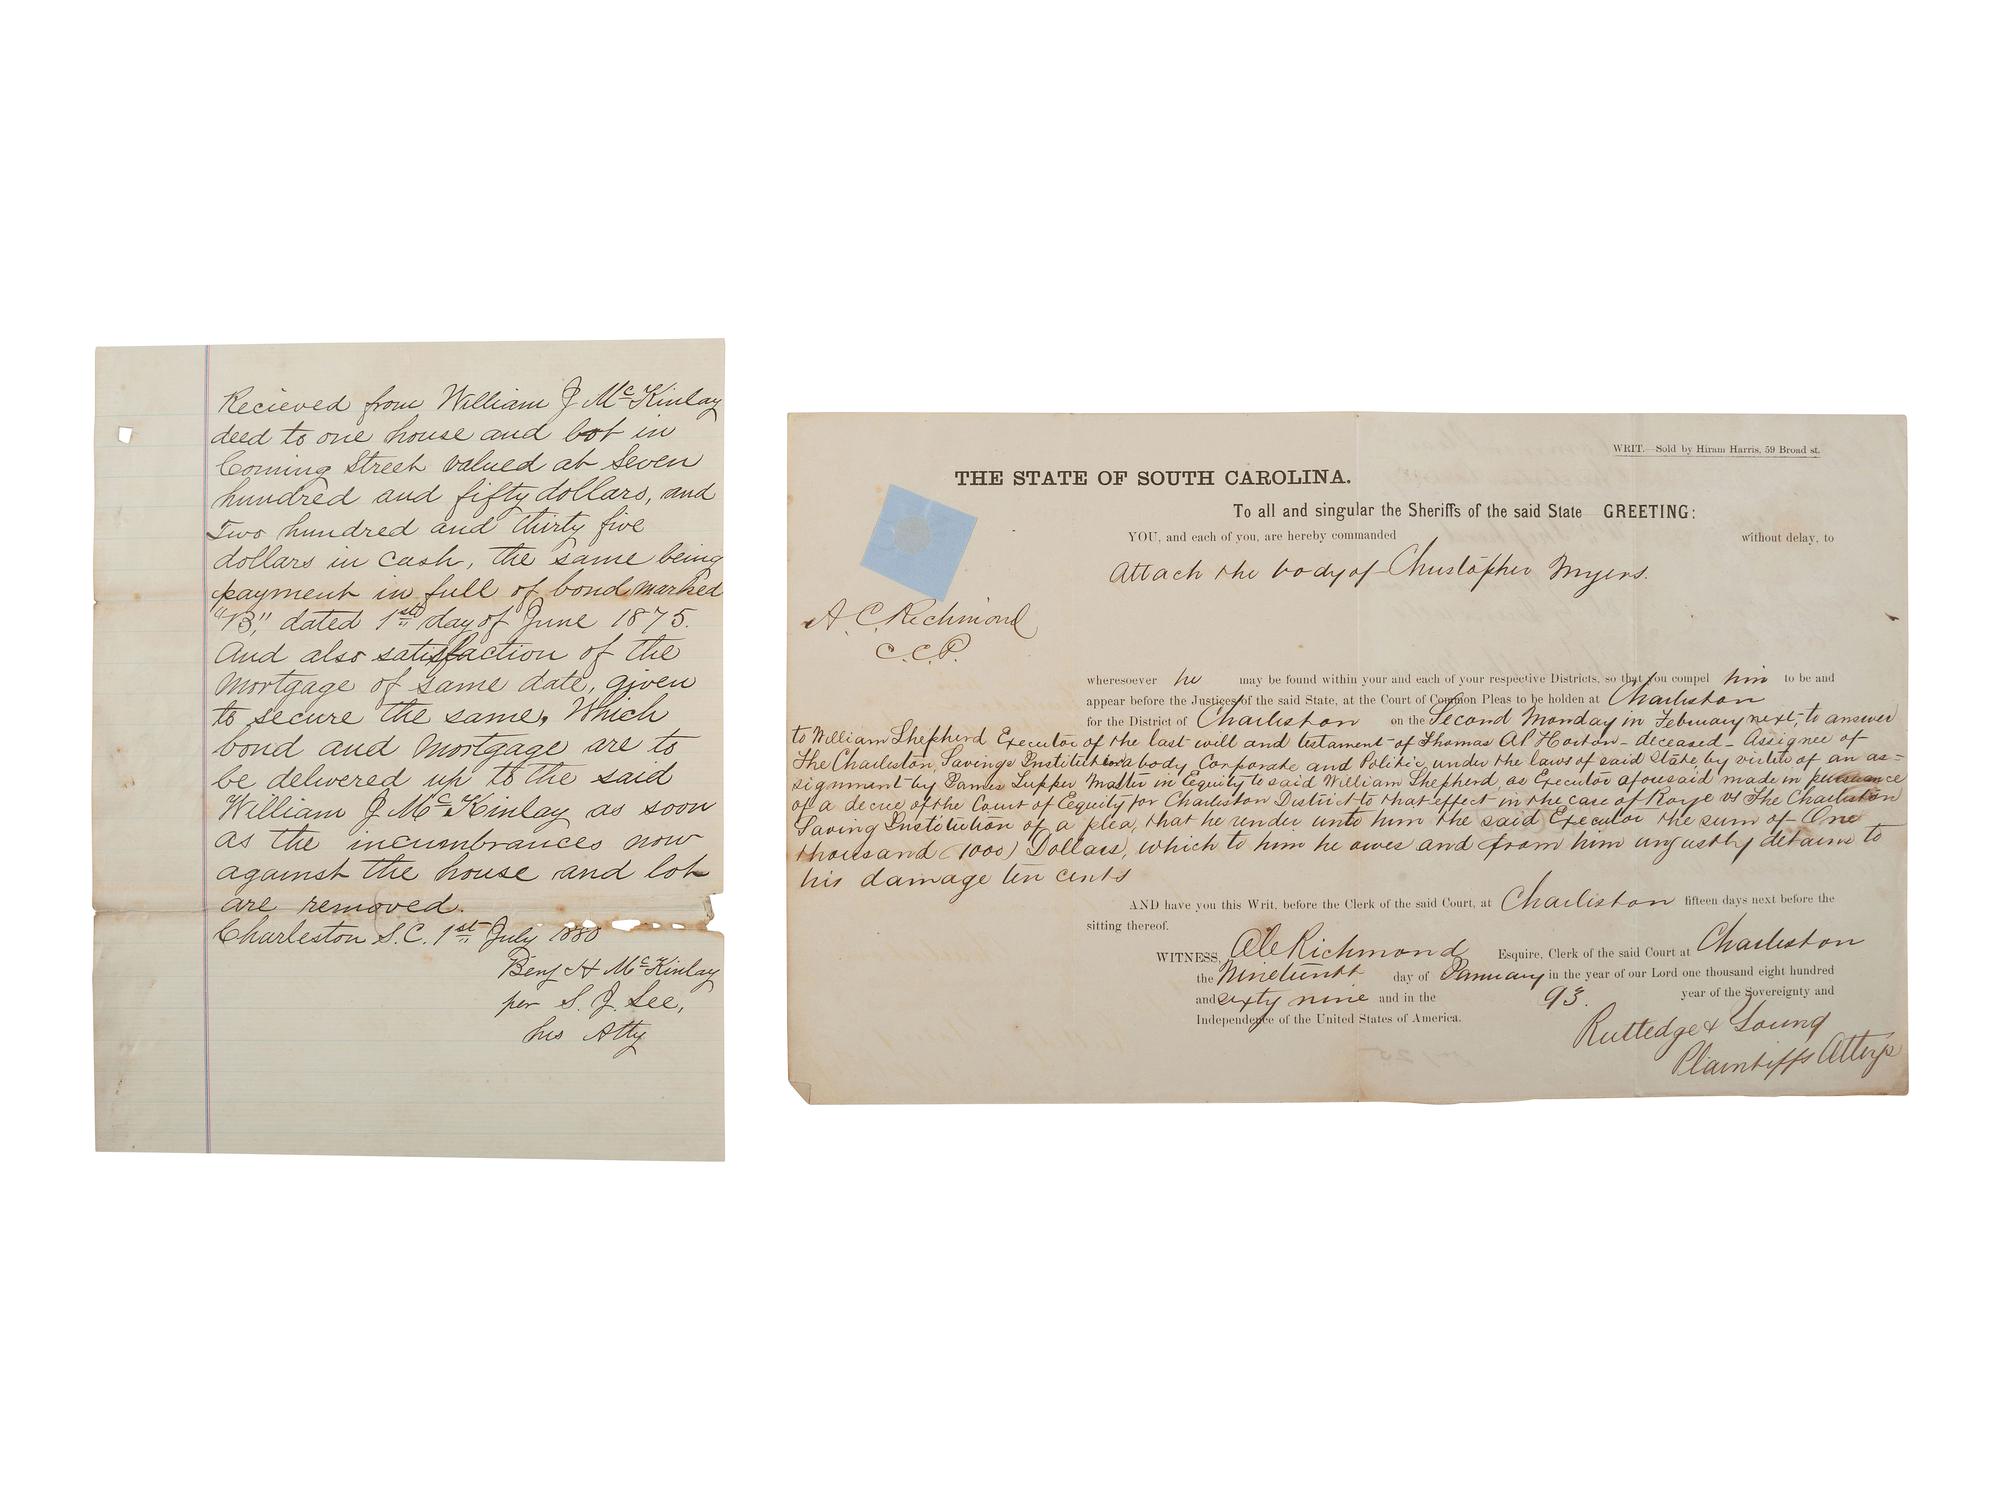 Recieved from William J McKinlay
deed to one house and lot in
Coming Street valued at Seven
hundred and fifty dollars, and
Two hundred and thirty five
dollars in cash, the same being
payment in full of bond marked
"B," dated 1st day of June 1875.
And also satisfaction of the
Mortgage of same date, given
to secure the same. Which
bond and Mortgage are to
be delivered up to the said
William J McKinlay as soon
as the incumbrances now
against the house and lot
are removed.
Charleston S.C. 1st July 1880
Benj H McKinlay
per S. J. Lee,
his Atty
WRIT.—Sold by Hiram Harris, 59 Broad st.
THE STATE OF SOUTH CAROLINA.
To all and singular the Sheriffs of the said State GREETING:
YOU, and each of you, are hereby commanded without delay, to
Attach the body of Christopher Myers.
A. C. Richmond
C.C.P.
wheresoever he may be found within your and each of your respective Districts, so that you compel him to be and
appear before the Justices of the said State, at the Court of Common Pleas to be holden at Charleston
for the District of Charleston on the Second Monday in February next, to answer
to William Shepherd Executor of the last will and testament of Thomas Horton - deceased - Assignee of
The Charleston Savings Institution a body Corporate and Politic, under the laws of said State, by virtue of an as=
signment by James Tupper Master in Equity to said William Shepherd, as Executor aforesaid made in pursuance
of a decree of the Court of Equity for Charleston District to that effect in the case of vs The Charleston
Saving Institution of a plea, that he render unto him the said Executor the sum of One
thousand (1000) Dollars, which to him he owes and from him unjustly detains to
his damage ten cents
AND have you this Writ, before the Clerk of the said Court, at Charleston fifteen days next before the
sitting thereof.
WITNESS, A C Richmond Esquire, Clerk of the said Court at Charleston
the Nineteenth day of January in the year of our Lord one thousand eight hundred
and sixty nine and in the 93. year of the Sovereignty and
Independence of the United States of America.
Rutledge & Young
Plaintiffs Attys